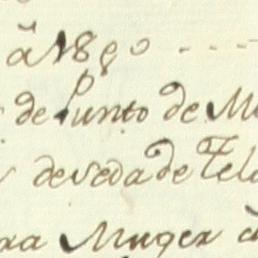 â 1880
de punto de M
de seda de Tela
xa Muger â